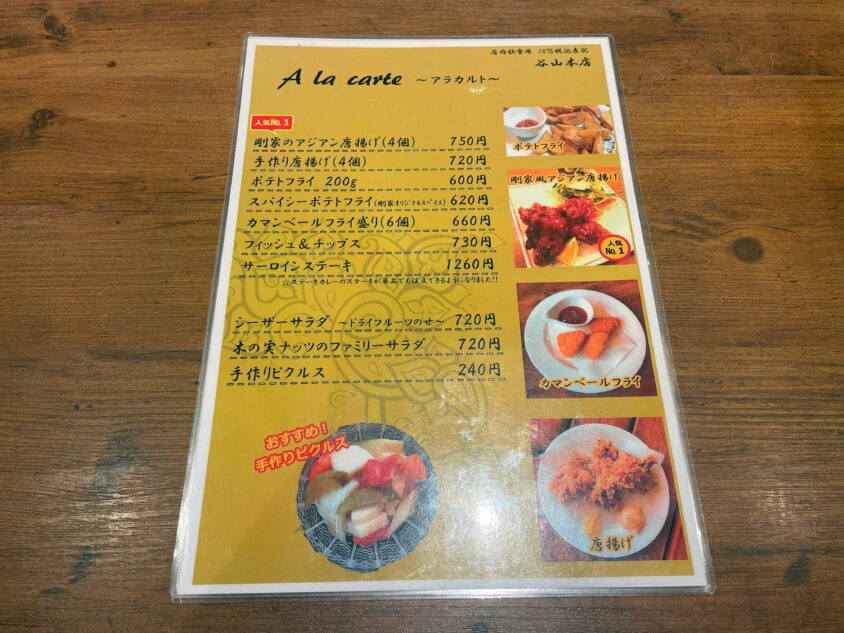 店内飲食用 10%税込表記
谷山本店
A la carte ～アラカルト～
人気No.1
剛家のアジアン唐揚げ(4個) 750円
手作り唐揚げ(4個) 720円
ポテトフライ 200g 600円
スパイシーポテトフライ(剛家オリジナルスパイス) 620円
カマンベールフライ盛り(6個) 660円
フィッシュ&チップス 730円
サーロインステーキ 1260円
☆ステーキカレーのステーキが単品でも注文できるようになりました!!
シーザーサラダ ～ドライフルーツのせ～ 720円
木の実ナッツのファミリーサラダ 720円
手作りピクルス 240円
おすすめ!
手作りピクルス
ポテトフライ
剛家風アジアン唐揚げ
人気
No.1
カマンベールフライ
唐揚げ